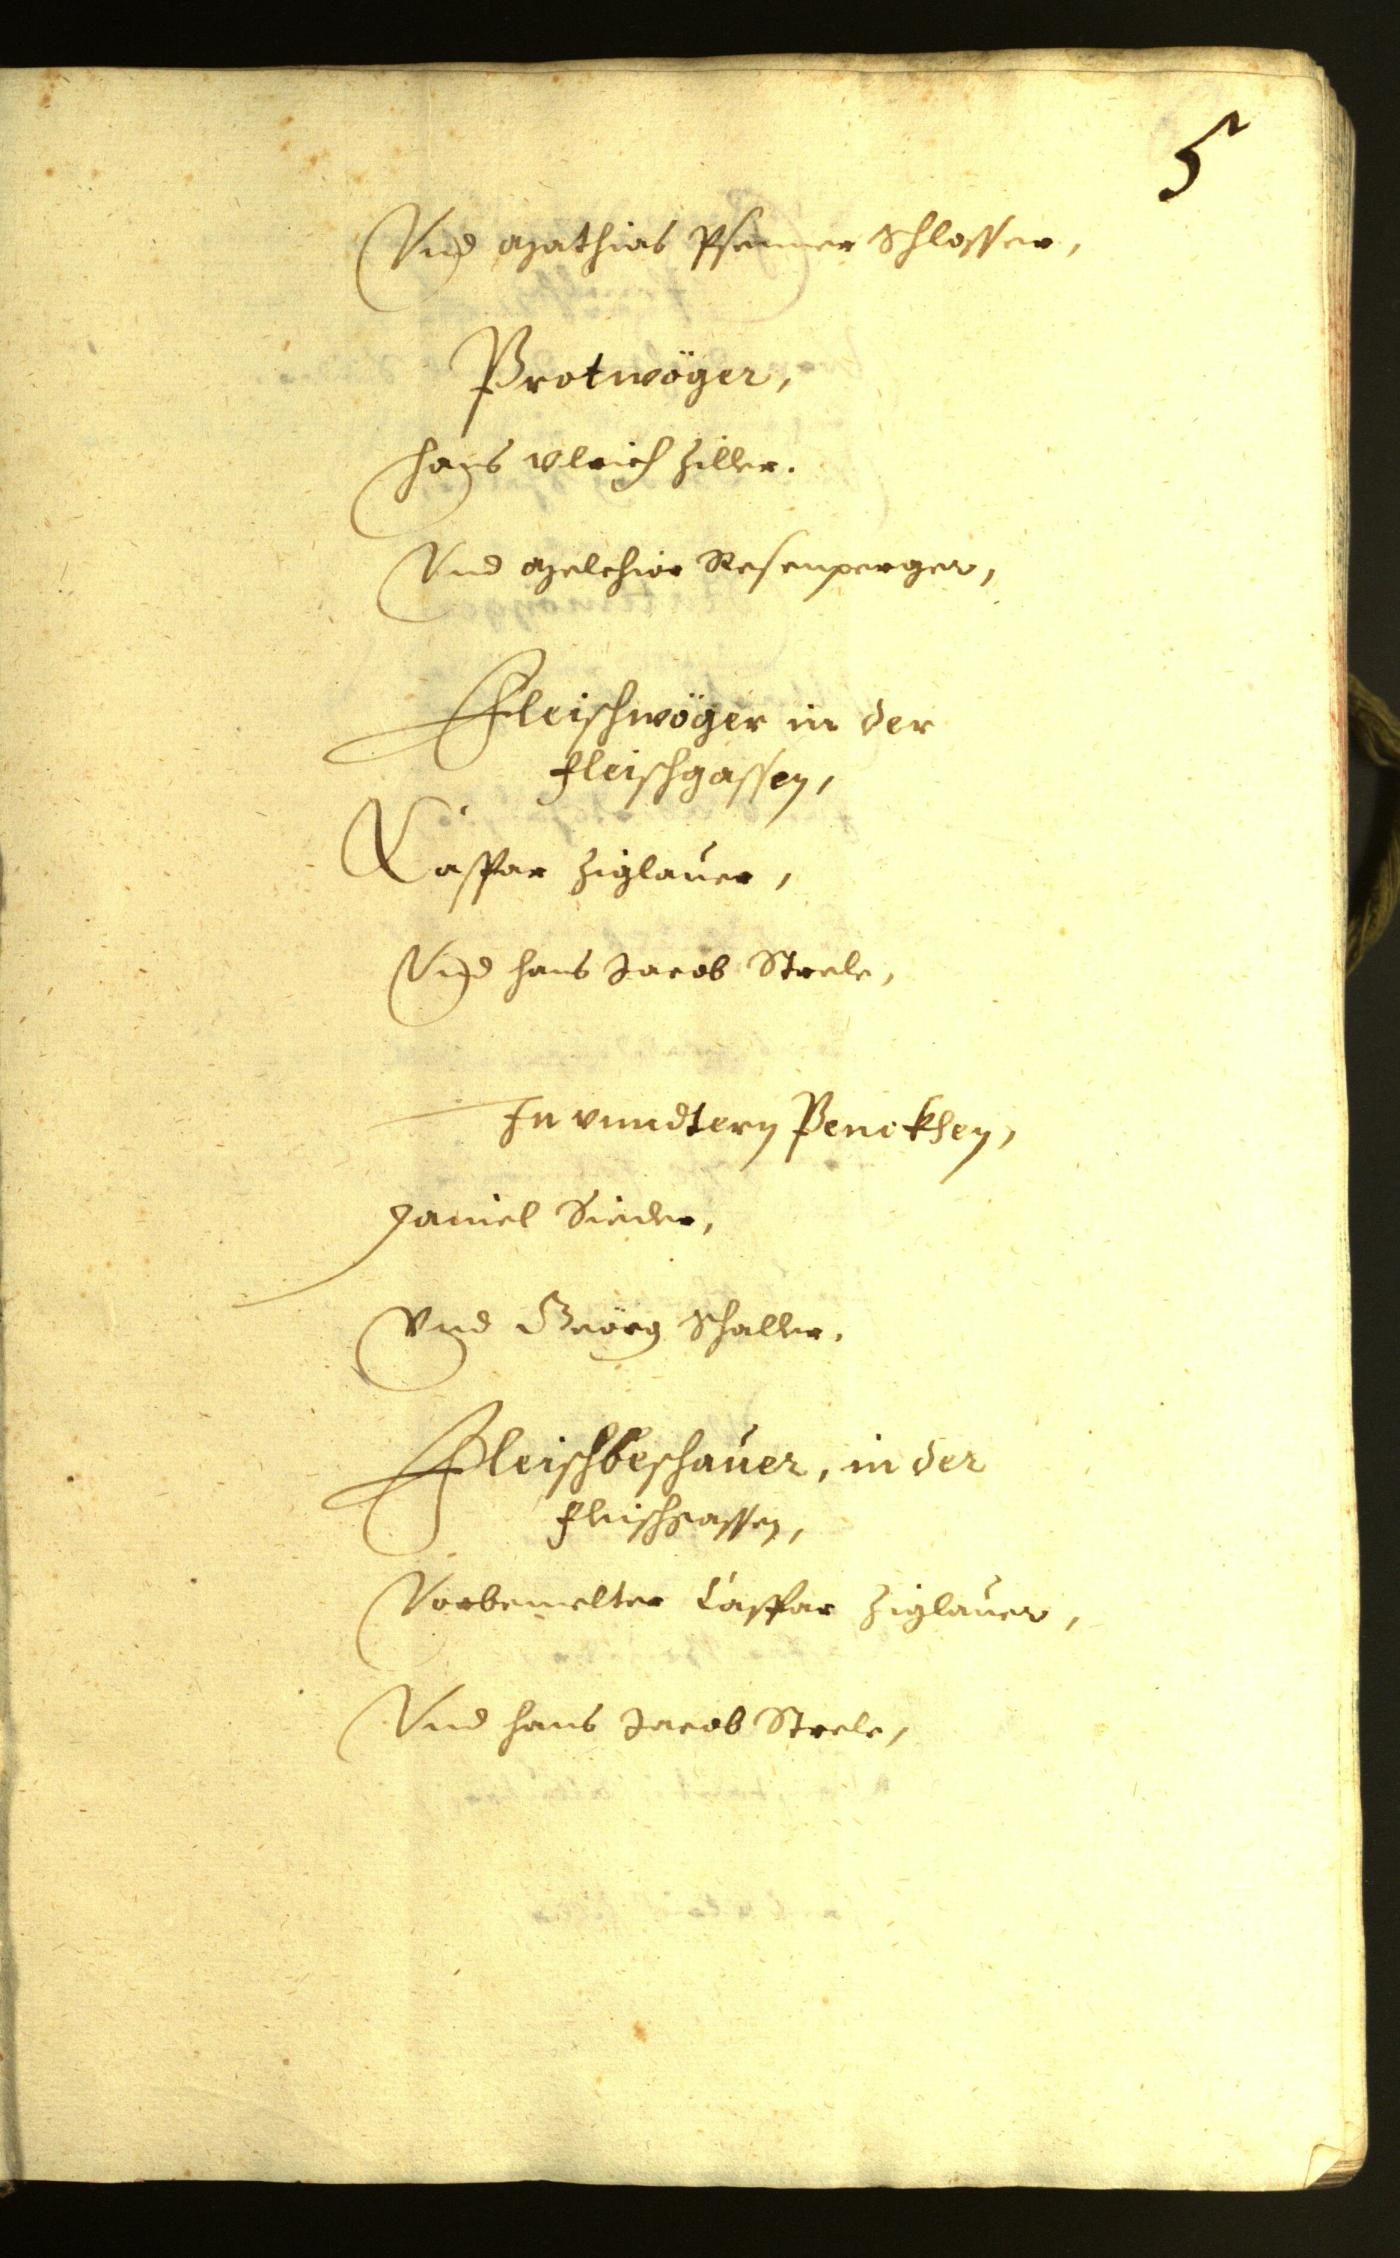 5
Vnd Mathias Pfenner Schlosser,
Protwöger,
Hans Vlrich Ziller.
Vnd Melchior Resenperger,
Fleischwöger in der
Fleischgassen,
Caspar Ziglauer,
Vnd Hans Jacob Strele,
In vnndtern Penckhen,
Daniel Sieder,
Vnd Geörg Schaller.
Fleischbeschauer, in der
Fleischgassen,
Vorbemelter Caspar Ziglauer,
Vnd Hans Jacob Strele,